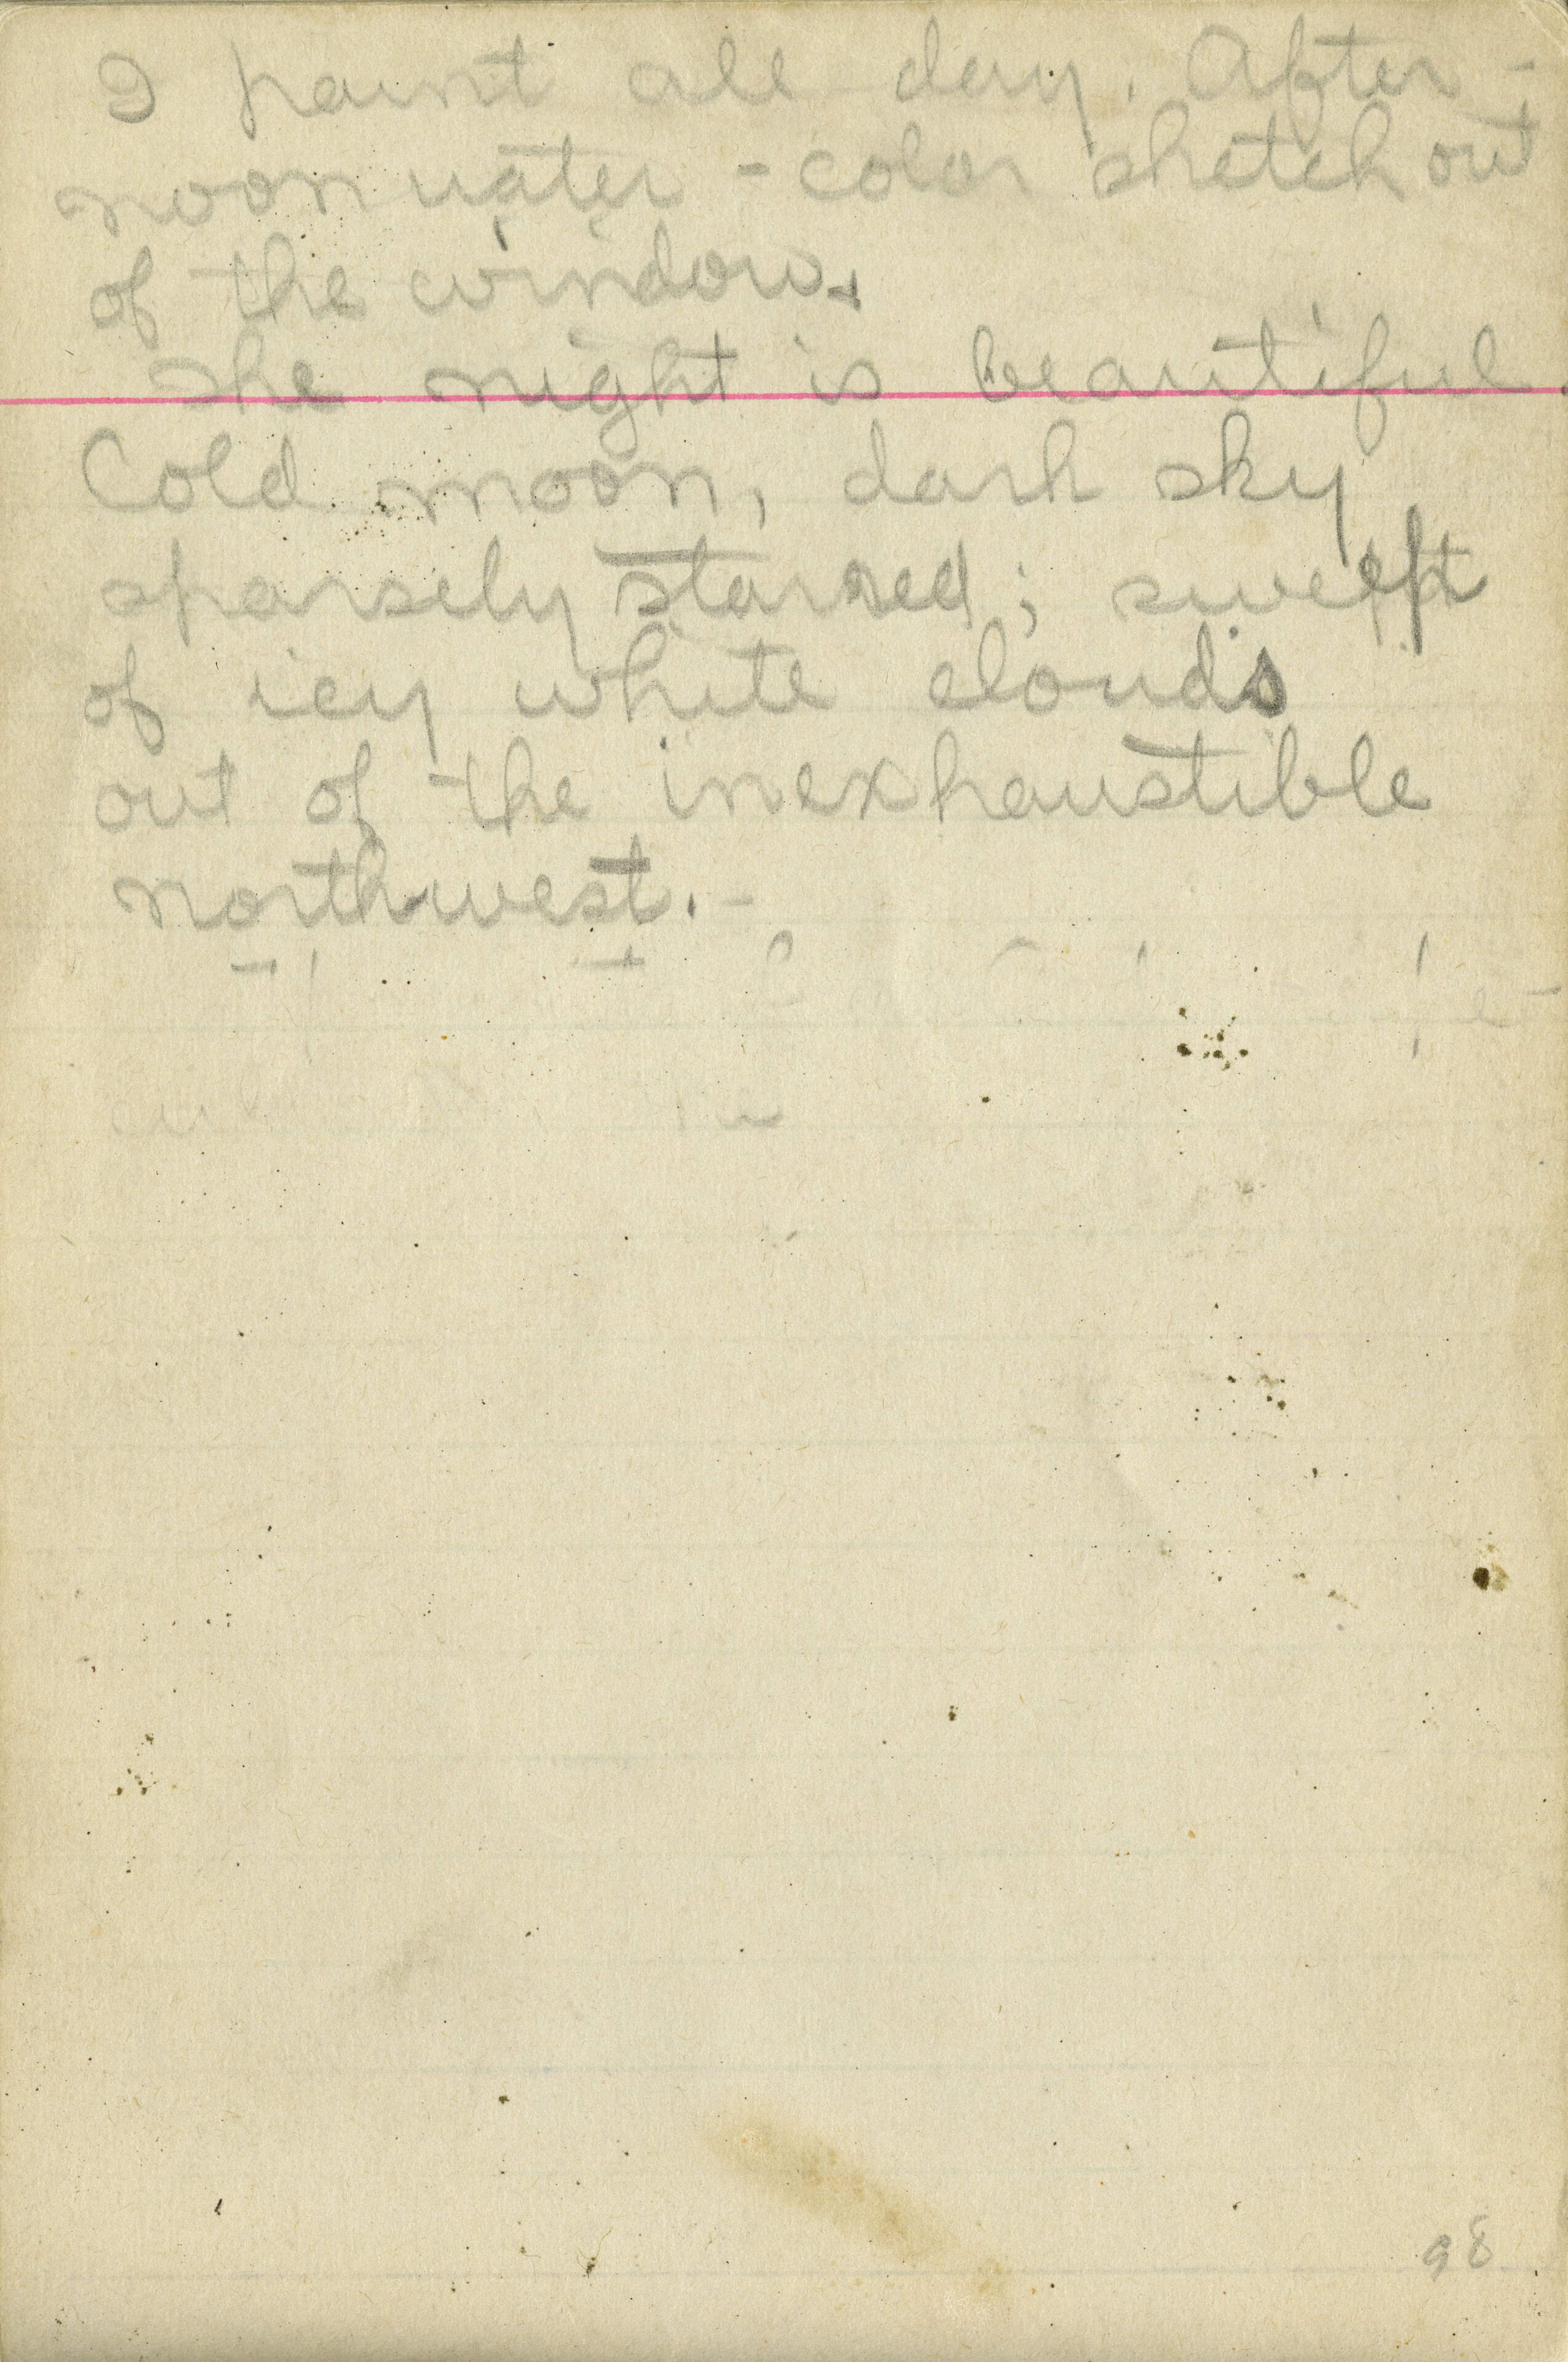 I paint all day. After-
noon water-color sketch out
of the window.
The night is beautiful.
Cold moon, dark sky
sparsely starred; swept
of icy white clouds
out of the inexhaustible
northwest. -
98